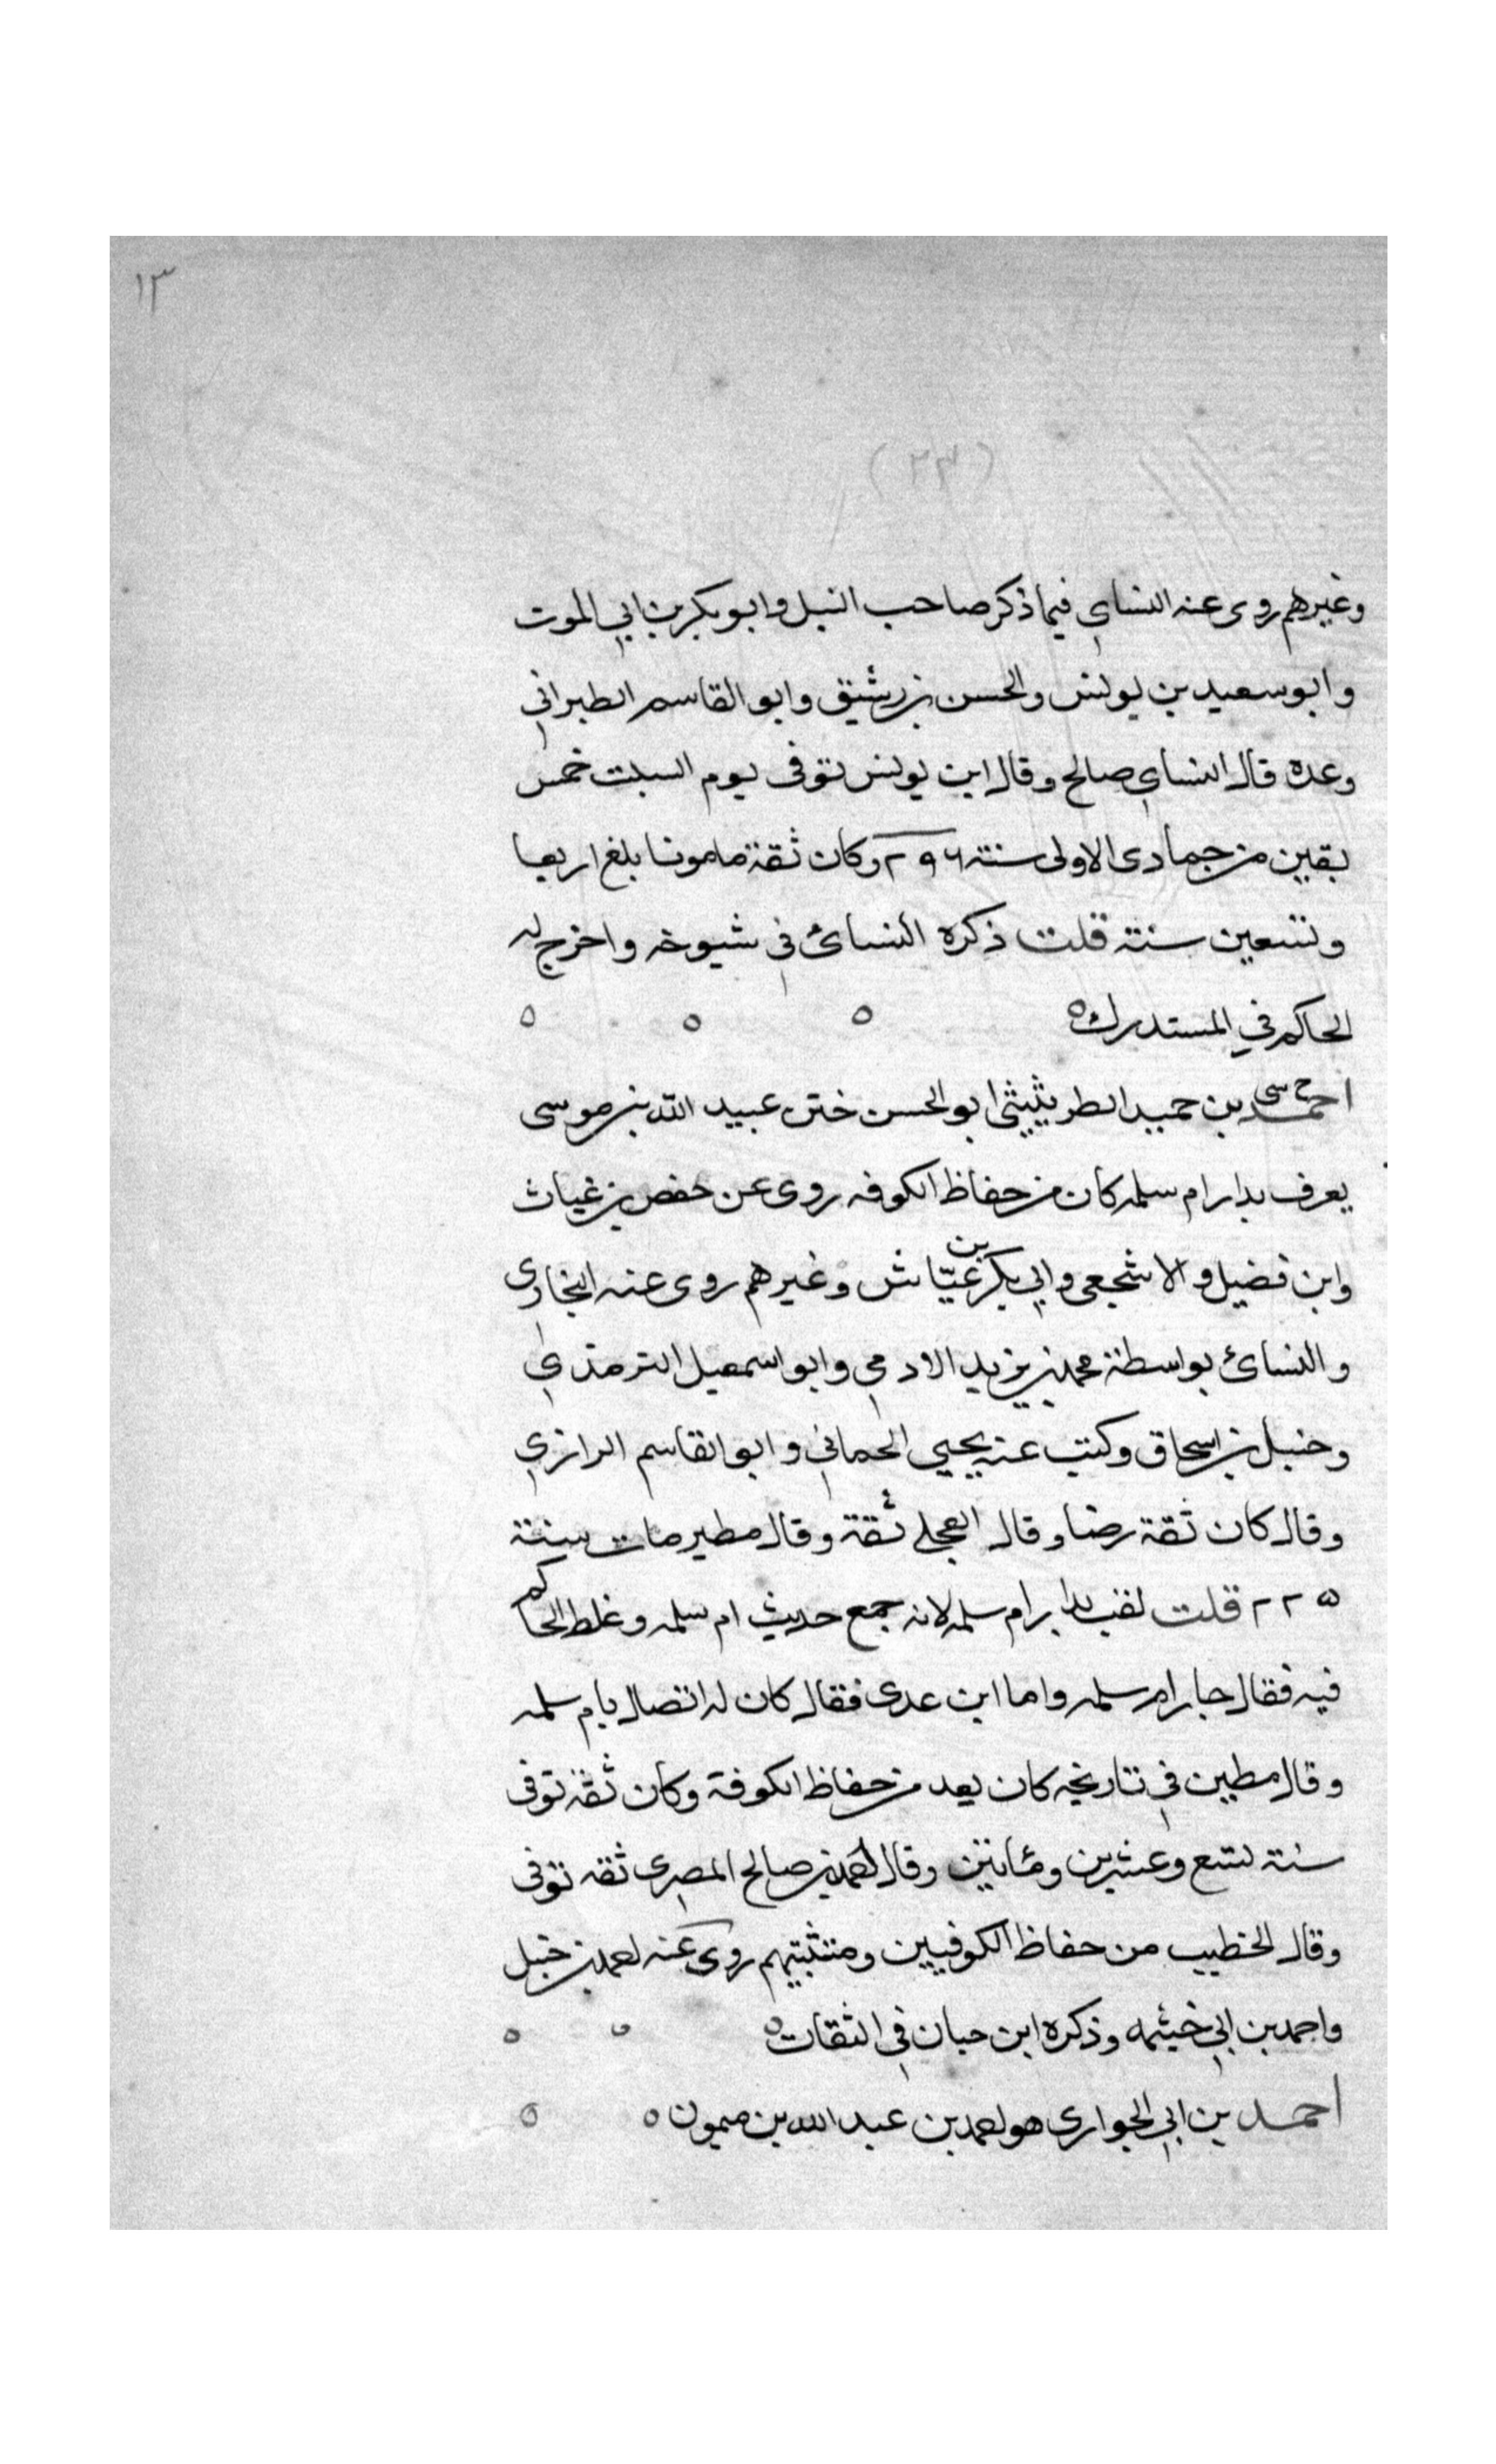 ١٣
(٢٣)
وغيرهم روى عنه النساي فيما ذكر صاحب النبل وابو بكر بن ابي الموت
وابو سعيد بن يونس والحسن بن رشيق وابو القاسم الطبراني
وعده قال النساي صالح وقال ابن يونس توفى يوم السبت خمس
بقين من جمادى الاولى سنة ٢٩٦ وكان ثقة مامونا بلغ اربعا
وتسعين سنة قلت ذكره النسائ في شيوخه واخرج له
الحاكم في المستدرك ه ه ه ه
خ سى
احمد بن حميد الطريثيثى ابو الحسن ختن عبيد الله بن موسى
يعرف بدار ام سلمه كان من حفاظ الكوفه روى عن حفص بن غياث
وابن فضيل والاشجعى وابي بكر بن عيّاش وغيرهم روى عنه البخارى
والنسائ بواسطة محمد بن يزيد الادمي وابو اسمعيل الترمذي
وحنبل بن اسحاق وكتب عنه يحيي الحماني وابو القاسم الرازي
وقال كان ثقة رضا وقال العجلي ثقة وقال مطير مات سنة
٢٢٥ قلت لقب بدار ام سلمه لانه جمع حديث ام سلمه وغلط الحاكم
فيه فقال جار ام سلمه واما ابن عدى فقال كان له اتصال بام سلمه
وقال مطين في تاريخه كان يعد من حفاظ الكوفة وكان ثقة توفى
سنة تسع وعشرين ومئاتين وقال احمد بن صالح المصرى ثقه توفى
وقال الخطيب من حفاظ الكوفيين ومتثبتيهم روى عنه احمد بن حنبل
واحمد بن ابي خيثمه وذكره ابن حبان في الثقات ه ه ه
احمد بن ابي الحوارى هو احمد بن عبد الله بن ميمون ه ه